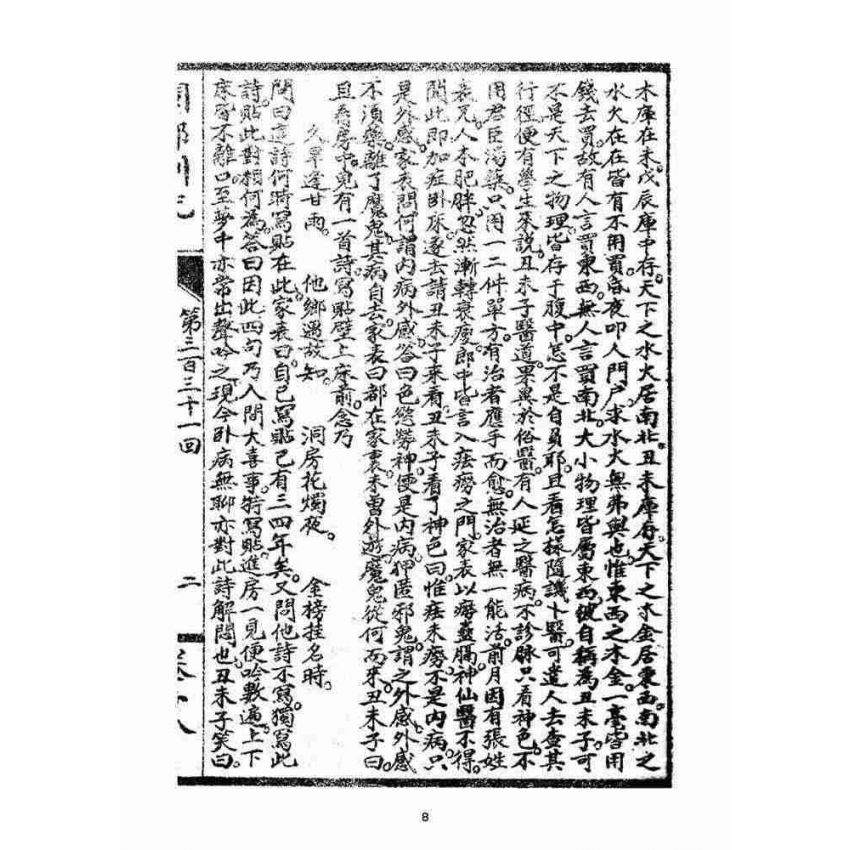 木庫在未戊辰庫中存。天下之水火居南北。丑未庫存天下之木金居東西。南北之
水火在在皆有不用買。昏夜叩人門戶求水火無弗與也。惟東西之木金。一毫皆用
錢去買。故有人言買東西。無人言買南北。大小物理皆屬東西。彼自稱為丑未子。可
不是天下之物理。皆存于腹中。怎不是自負耶。且看怎樣隨議卜醫。可遣人去查其
行徑。便有學生來說。丑未子醫道。果異於俗醫。有人延之醫病。不診脉只看神色。不
用君臣湯藥。只用一二件單方。有治者應手而愈。無治者無一能活。前月因有張姓
表兄。人本肥胖。忽然漸轉衰瘦。郎中皆言入痨之門。家表以癆蠱膈神仙醫不得。
聞此即加症卧床。遂去請丑未子來看。丑未子看了神色曰。惟未癆。不是内病。只
是外感。家表問何謂内病外感。答曰色慾勞神。便是内病。狎匿邪鬼。謂之外感。外感
不湏藥。離了魔鬼其病自去。家表曰都在家裏未曽外遊。魔鬼從何而來。丑未子曰
且看房中。見有一首詩。寫貼壁上床前。念乃
久旱逢甘雨。 他鄉遇故知。 洞房花燭夜。 金榜挂名時。
問曰這詩何時寫貼在此。家表曰。自己寫貼已有三四年矣。又問他詩不寫。獨寫此
詩。貼此對頼何為。答曰因此四句乃人間大喜事。特寫貼進房一見便吟數遍。上下
床皆不離口。至夢中亦常出聲吟之。現今卧病無聊。亦對此詩解悶也。丑未子笑曰。
第三百三十一回
二